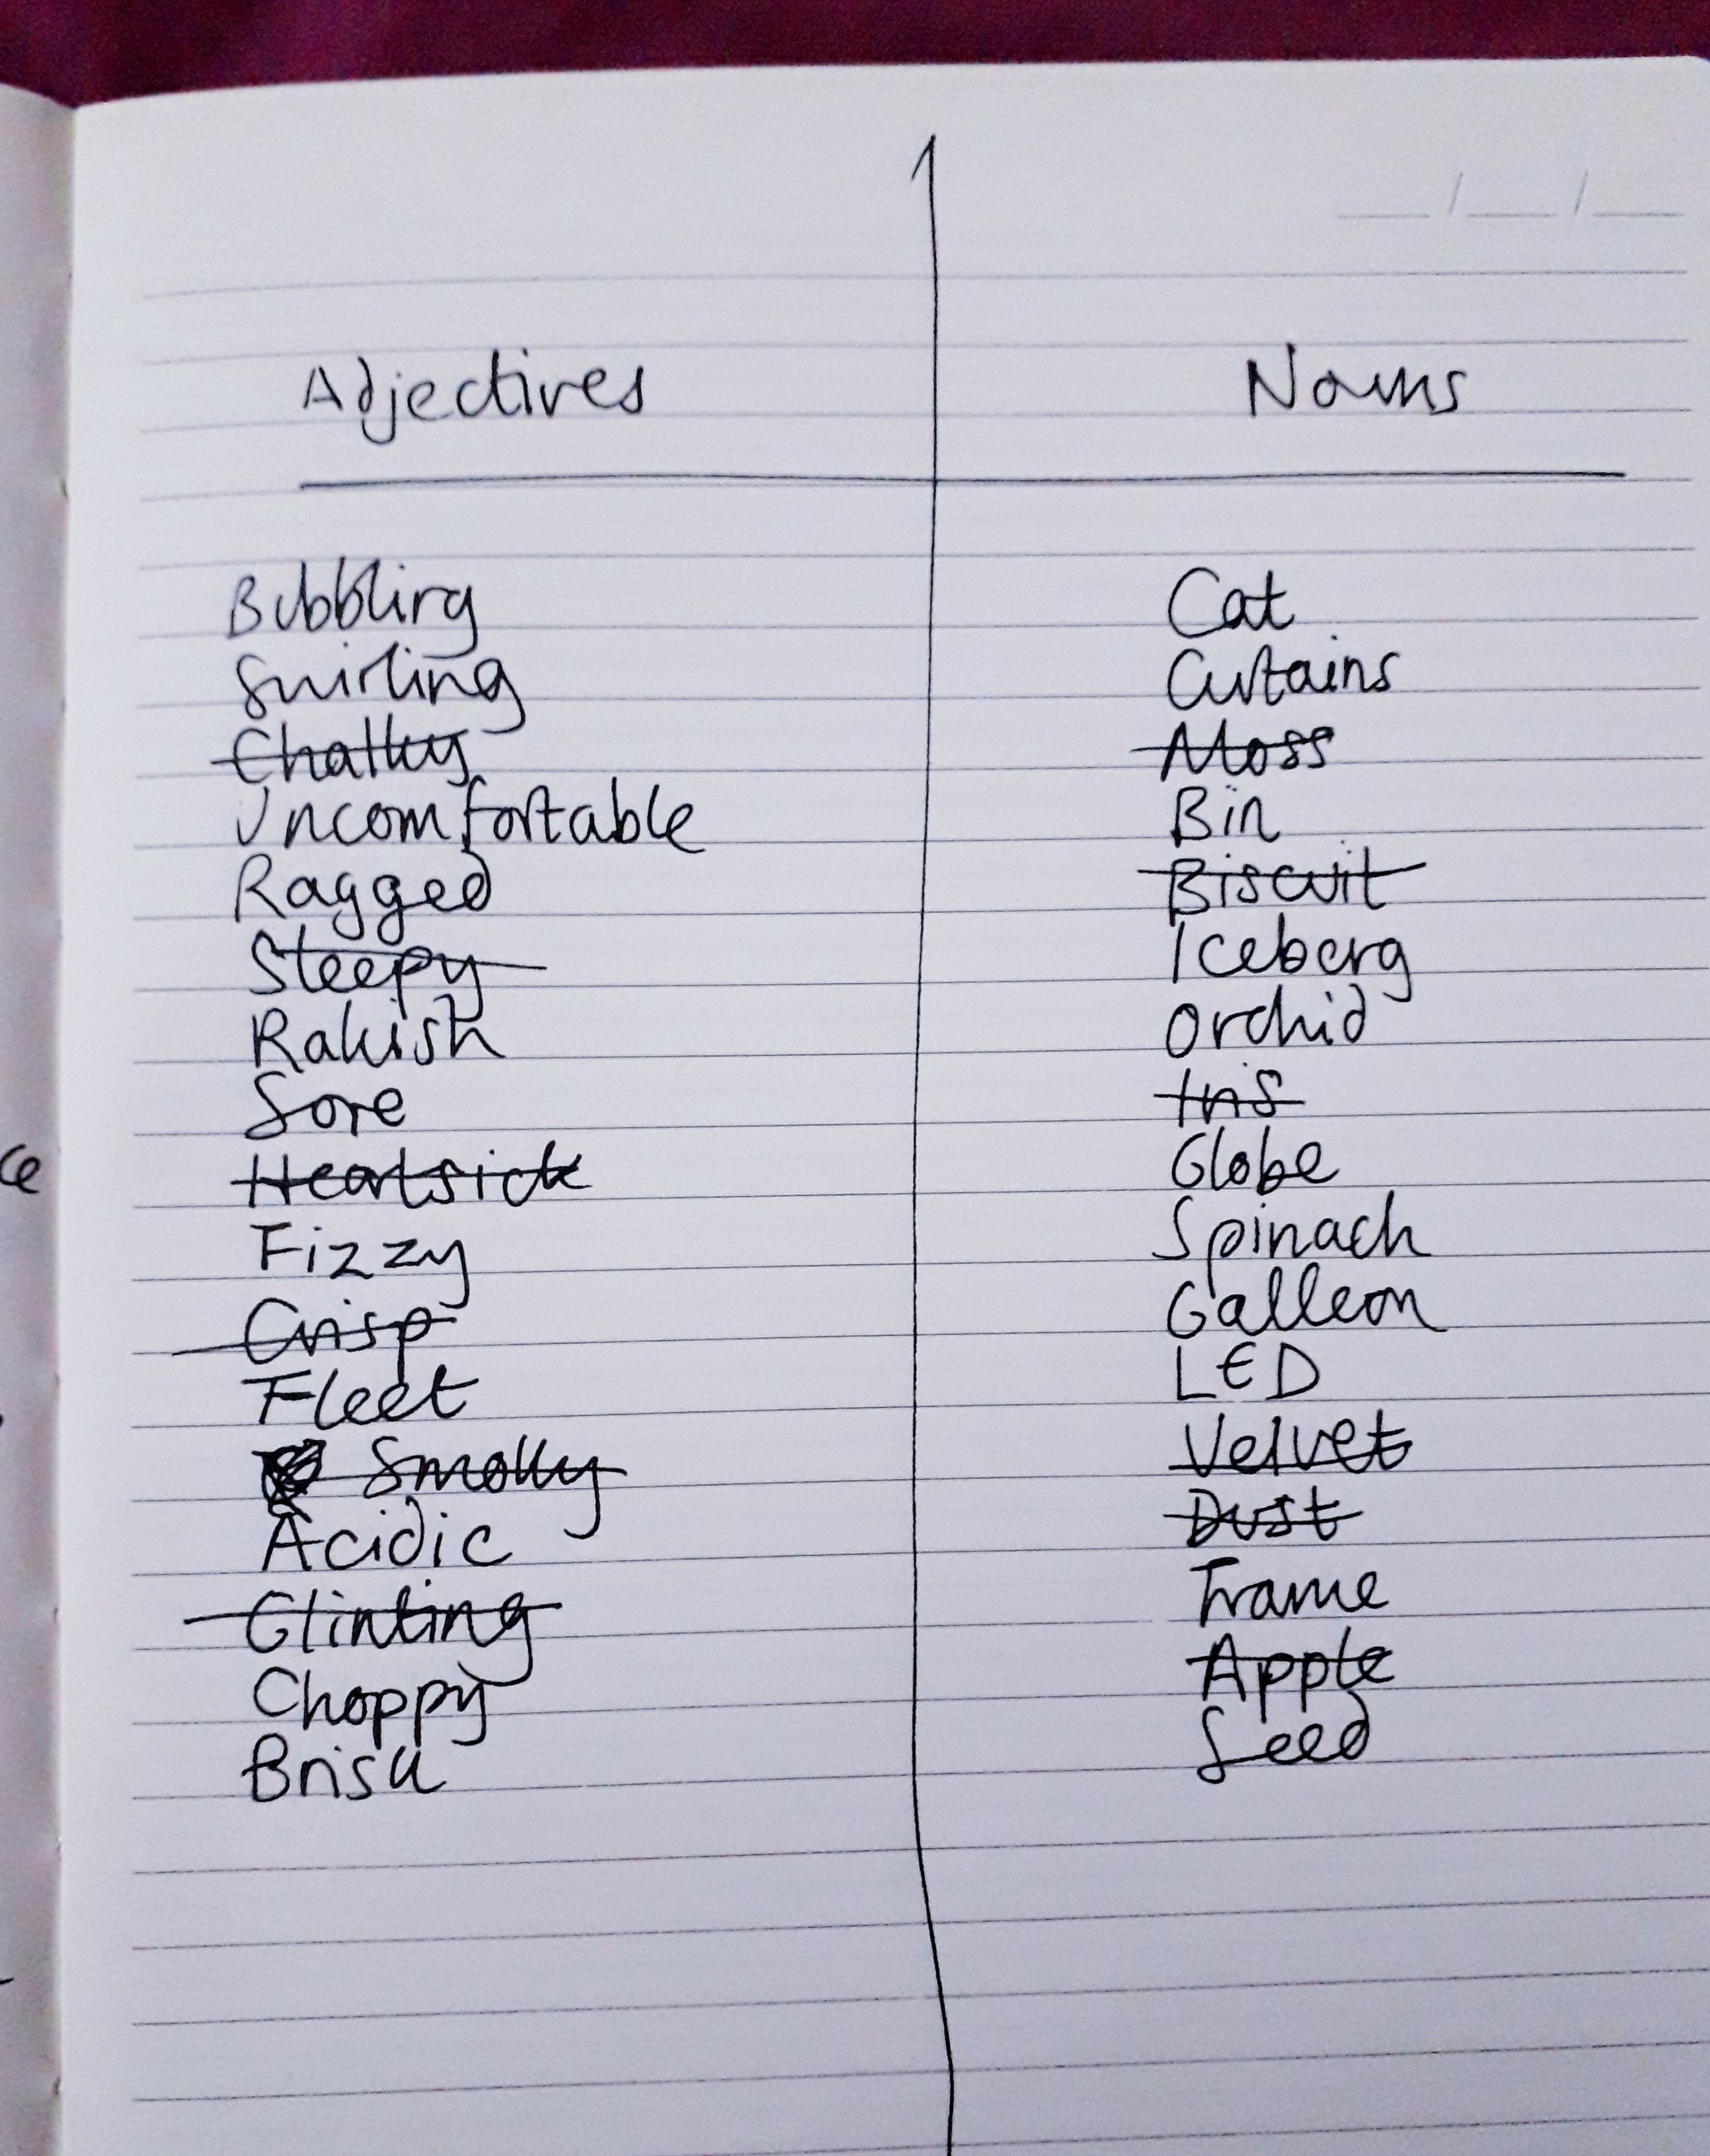 Adjectives Nouns
Bubbling Cat
Swirling Curtains
Chalky Moss
Uncomfortable Bin
Ragged Biscuit
Sleepy Iceberg
Rakish Orchid
Sore Iris
Heartsick Globe
Fizzy Spinach
Crisp Galleon
Fleet LED
Smoky Velvet
Acidic Dust
Glinting Frame
Choppy Apple
Brisk Seed
ce